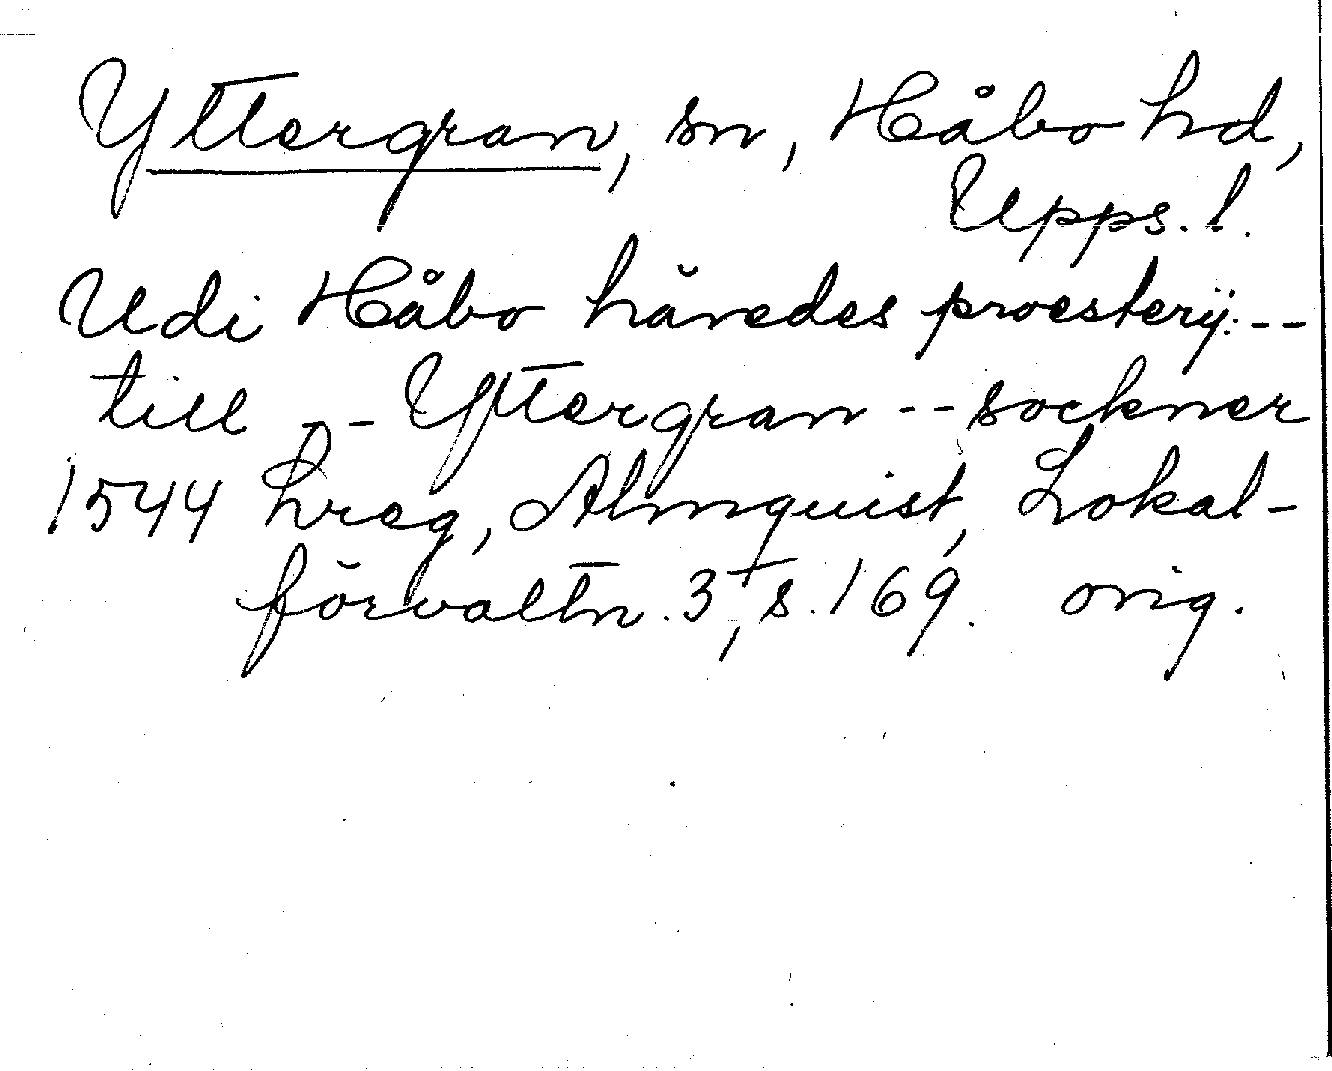 Yttergran, sn, Håbo hd,
Upps. l.
Udi Håbo häredes proesterij: --
till -- Yttergran -- sockner
1544 hreg, Almquist, Lokal-
förvaltn. 3, s. 169. orig.